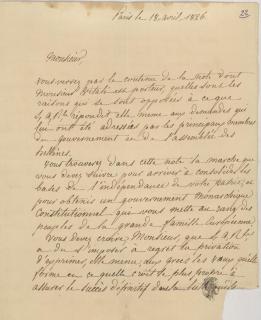 Paris le 18 avril, 1826.
Monsieur,
vous verrez par le contenu de la Note dont
Monsieur est porteur, quelles sont les
raisons qui se sont opposées à ce que
S. A. R. le répondit elle même aux demandes qui
lui ont été adressées par les principaux membres
du gouvernement et de l'assemblée des
hellènes.
Vous trouverez dans cette note la marche que
vous devez suivre pour arriver à consolider les
bases de l'indépendance de votre patrie, et
pour obtenir un gouvernement Monarchique
Constitutionnel que vous mette au rang des
peuples de la grande famille
Vous devez croire, Monsieur, que S. A. R.
a du s'imposer à regret la privation
d'exprimer elle même, aux grecs les vœux qu'elle
forme en ce qu'elle croit le plus propre à
assurer le succès définitif dans la